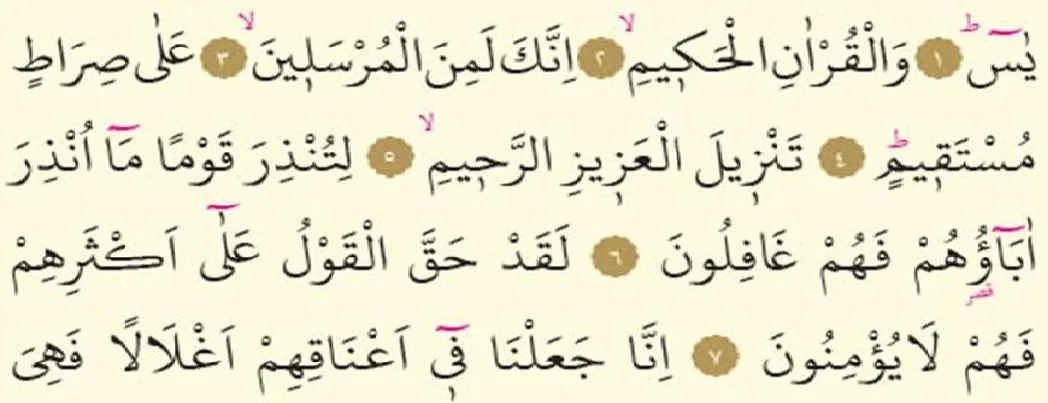 يٰسٓ ۜ ﴿١﴾ وَالْقُرْاٰنِ الْحَكٖيمِ ۙ ﴿٢﴾ اِنَّكَ لَمِنَ الْمُرْسَلٖينَ ۙ ﴿٣﴾ عَلٰى صِرَاطٍ
مُسْتَقٖيمٍ ؕ ﴿٤﴾ تَنْزٖيلَ الْعَزٖيزِ الرَّحٖيمِ ۙ ﴿٥﴾ لِتُنْذِرَ قَوْمًا مَٓا اُنْذِرَ
اٰبَٓاؤُ۬هُمْ فَهُمْ غَافِلُونَ ﴿٦﴾ لَقَدْ حَقَّ الْقَوْلُ عَلٰٓى اَكْثَرِهِمْ
قصر
فَهُمْ لَا يُؤْمِنُونَ ﴿٧﴾ اِنَّا جَعَلْنَا فٖٓي اَعْنَاقِهِمْ اَغْلَالًا فَهِىَ